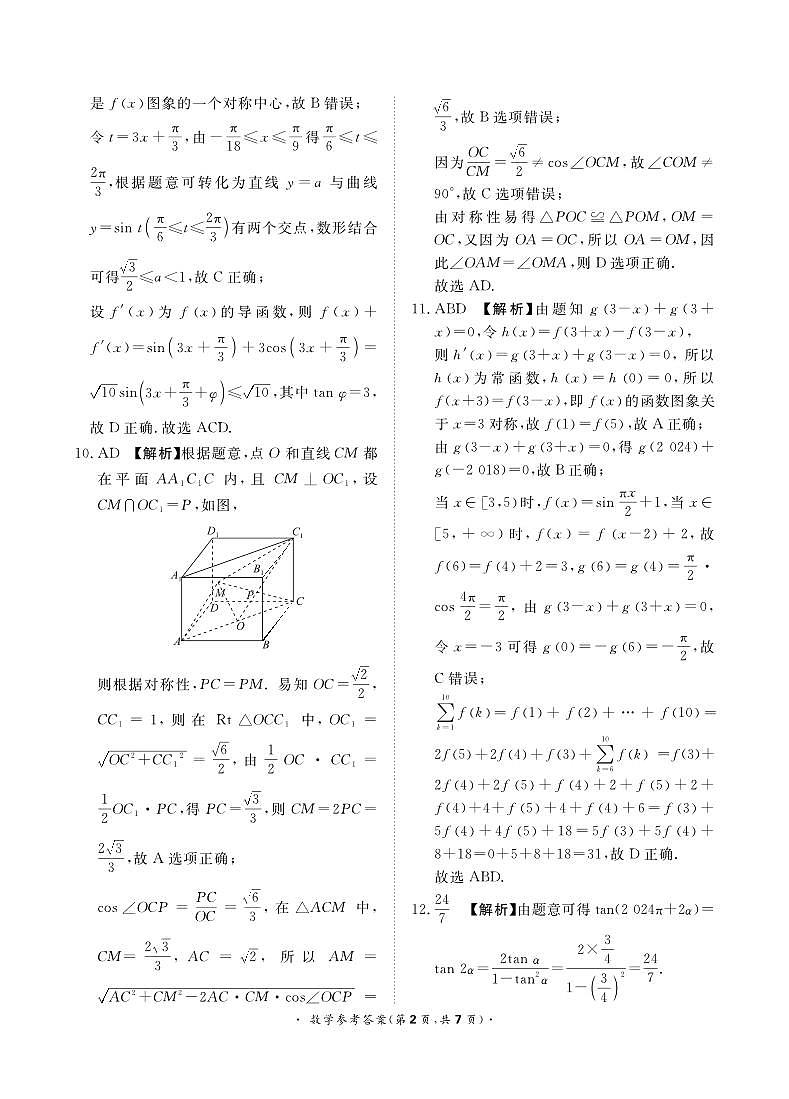 是 f(x)图象的一个对称中心,故 B 错误;
令 t=3x+π/3,由-π/18≤x≤π/9得π/6≤t≤
2π/3,根据题意可转化为直线 y=a 与曲线
y=sin t(π/6≤t≤2π/3)有两个交点,数形结合
可得√3/2≤a<1,故 C 正确;
设 f′(x)为 f(x)的导函数,则 f(x)+
f′(x)=sin(3x+π/3)+3cos(3x+π/3)=
√10sin(3x+π/3+φ)≤√10,其中 tan φ=3,
故 D 正确.故选 ACD.
10. AD 【解析】根据题意,点 O 和直线 CM 都
在平面 AA₁C₁C 内,且 CM⊥OC₁,设
CM∩OC₁=P,如图,
D₁ C₁
A₁ B₁
M P
D C
O
A B
则根据对称性,PC=PM. 易知 OC=√2/2,
CC₁=1,则在 Rt△OCC₁ 中,OC₁=
√(OC²+CC₁²)=√6/2,由 1/2 OC·CC₁=
1/2 OC₁·PC,得 PC=√3/3,则 CM=2PC=
2√3/3,故 A 选项正确;
cos∠OCP=PC/OC=√6/3,在△ACM 中,
CM=2√3/3,AC=√2,所以 AM=
√(AC²+CM²-2AC·CM·cos∠OCP)=
√6/3,故 B 选项错误;
因为OC/CM=√6/2≠cos∠OCM,故∠COM≠
90°,故 C 选项错误;
由对称性易得△POC≌△POM,OM=
OC,又因为 OA=OC,所以 OA=OM,因
此∠OAM=∠OMA,则 D 选项正确.
故选 AD.
11. ABD 【解析】由题知 g(3-x)+g(3+
x)=0,令 h(x)=f(3+x)-f(3-x),
则 h′(x)=g(3+x)+g(3-x)=0,所以
h(x)为常函数,h(x)=h(0)=0,所以
f(x+3)=f(3-x),即 f(x)的函数图象关
于 x=3 对称,故 f(1)=f(5),故 A 正确;
由 g(3-x)+g(3+x)=0,得 g(2 024)+
g(-2 018)=0,故 B 正确;
当 x∈[3,5)时,f(x)=sin πx/2+1,当 x∈
[5,+∞)时,f(x)=f(x-2)+2,故
f(6)=f(4)+2=3,g(6)=g(4)=π/2·
cos 4π/2=π/2,由 g(3-x)+g(3+x)=0,
令 x=-3 可得 g(0)=-g(6)=-π/2,故
C 错误;
∑(k=1→10) f(k)=f(1)+f(2)+…+f(10)=
2f(5)+2f(4)+f(3)+∑(k=6→10) f(k)=f(3)+
2f(4)+2f(5)+f(4)+2+f(5)+2+
f(4)+4+f(5)+4+f(4)+6=f(3)+
5f(4)+4f(5)+18=5f(3)+5f(4)+
8+18=0+5+8+18=31,故 D 正确.
故选 ABD.
12. 24/7 【解析】由题意可得 tan(2 024π+2α)=
tan 2α=2tan α/(1-tan²α)=(2×3/4)/(1-(3/4)²)=24/7.
·数学参考答案(第 2 页,共 7 页)·